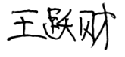 王跃财